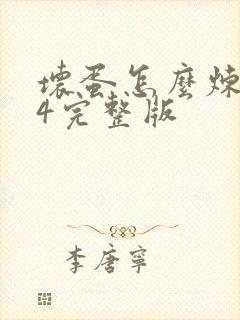 壞蛋怎麼煉
4完整版
李唐寧